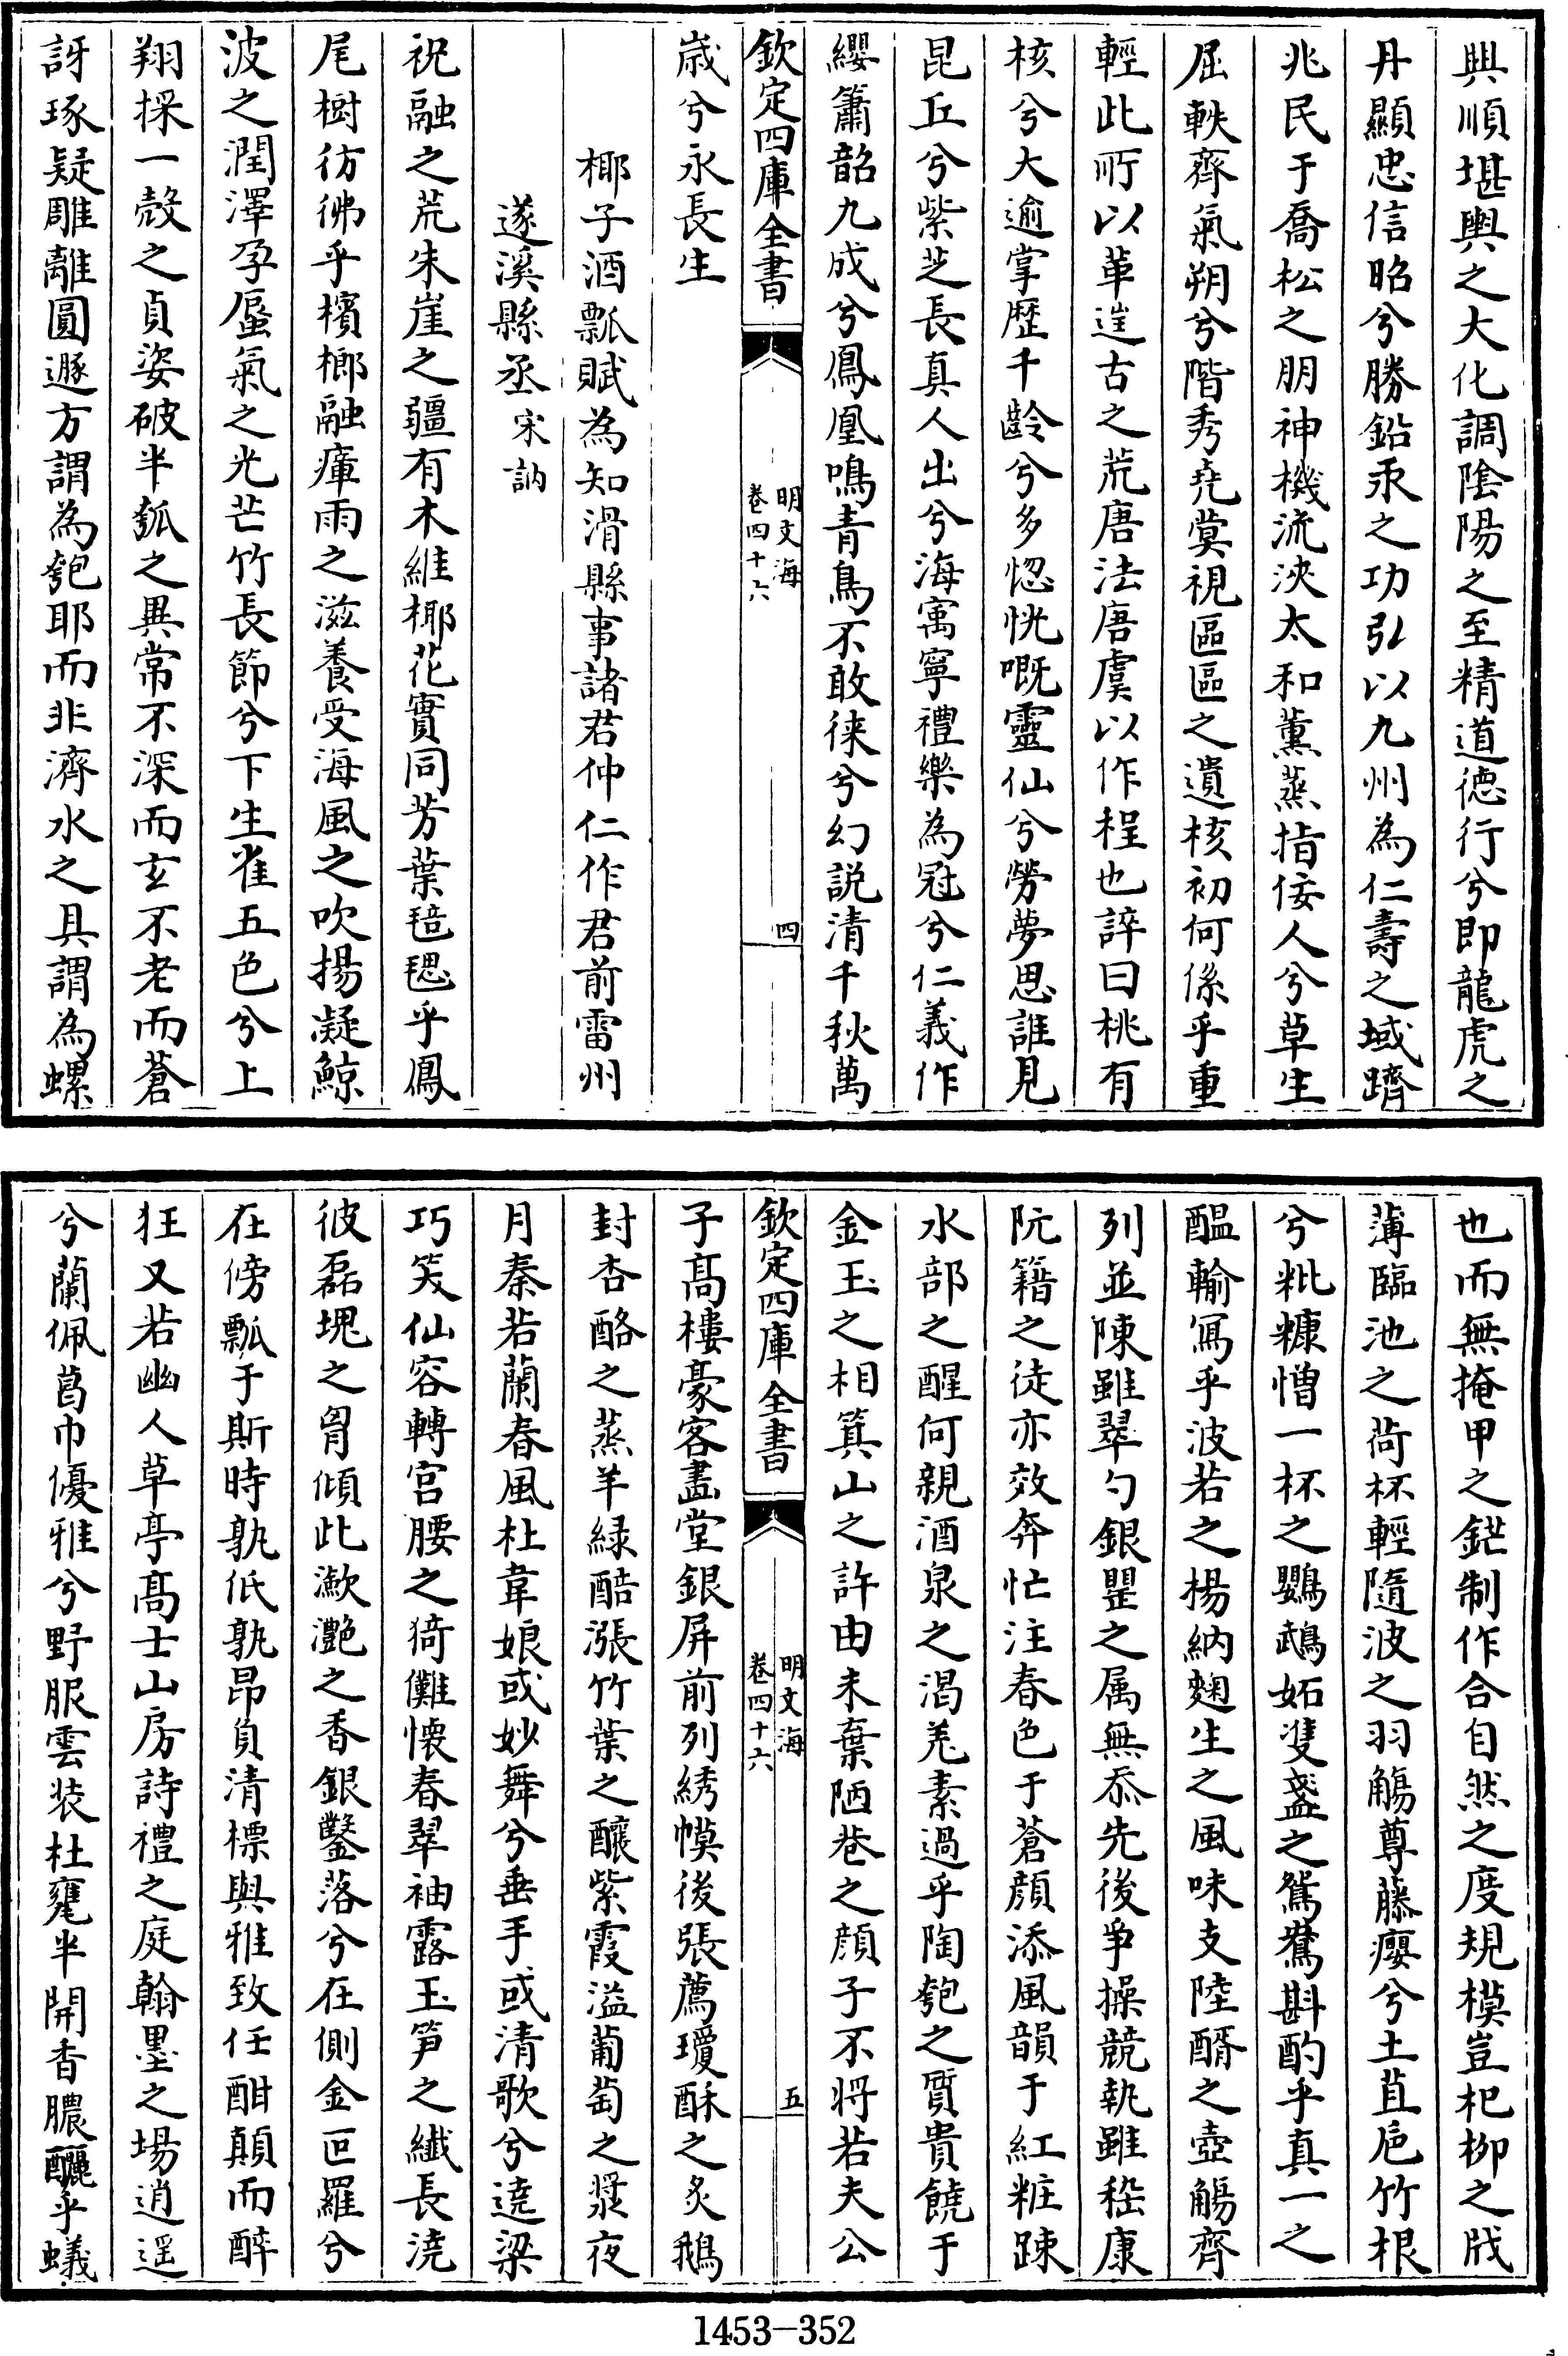 與順堪輿之大化調陰陽之至精道德行兮即龍虎之
丹顯忠信昭兮勝鉛汞之功引以九州為仁壽之域躋
兆民于喬松之朋神機流泱太和薰蒸指佞人兮草生
屈軼齊氣朔兮階秀堯蓂視區區之遺核初何係乎重
輕此所以革逬古之荒唐法唐虞以作程也誶曰桃有
核兮大逾掌歴千齡兮多惚恍嘅靈仙兮勞夢思誰見
昆丘兮紫芝長真人出兮海㝢寧禮樂為冠兮仁義作
纓簫韶九成兮鳳凰鳴青鳥不敢徠兮幻説清千秋萬
欽定四庫全書
明文海
卷四十六
四
嵗兮永長生
椰子酒瓢賦為知滑縣事諸君仲仁作君前雷州
遂溪縣丞 宋訥
祝融之荒朱崖之疆有木維椰花實同芳葉毰毸乎鳳
尾樹彷彿乎檳榔融瘴雨之滋養受海風之吹揚凝鯨
波之潤澤孕蜃氣之光芒竹長節兮下生雀五色兮上
翔採一殼之貞姿破半瓠之異常不深而玄不老而蒼
訝琢疑雕離圓遯方謂為匏耶而非濟水之具謂為螺
也而無掩甲之鋩制作合自然之度規模豈杞柳之戕
薄臨池之荷杯輕隨波之羽觴尊藤癭兮土苴巵竹根
兮粃糠憎一杯之鸚鵡妬雙盞之鴛鴦斟酌乎真一之
醖輸冩乎波若之揚納麴生之風味支陸醑之壺觴齊
列並陳雖翠勺銀罌之属無忝先後爭操競執雖嵇康
阮籍之徒亦效奔忙注春色于蒼顔添風韻于紅粧踈
水部之醒何親酒泉之渇羗素過乎陶匏之質貴饒于
金玉之相箕山之許由未棄陋巷之顔子不将若夫公
欽定四庫全書
明文海
卷四十六
五
子髙樓豪客畵堂銀屏前列綉幙後張薦瓊酥之炙鵝
封杏酪之蒸羊緑酷漲竹葉之釀紫霞溢葡萄之漿夜
月秦若蘭春風杜韋娘或妙舞兮垂手或清歌兮遶梁
巧笑仙容轉宫腰之猗儺懷春翠袖露玉笋之纎長澆
彼磊塊之胷傾此瀲灔之香銀鑿落兮在側金叵羅兮
在傍瓢于斯時孰低孰昂負清標與雅致任酣顛而醉
狂又若幽人草亭髙士山房詩禮之庭翰墨之場逍遥
兮蘭佩葛巾優雅兮野服雲装杜甕半開香膿釃乎蟻
1453—352